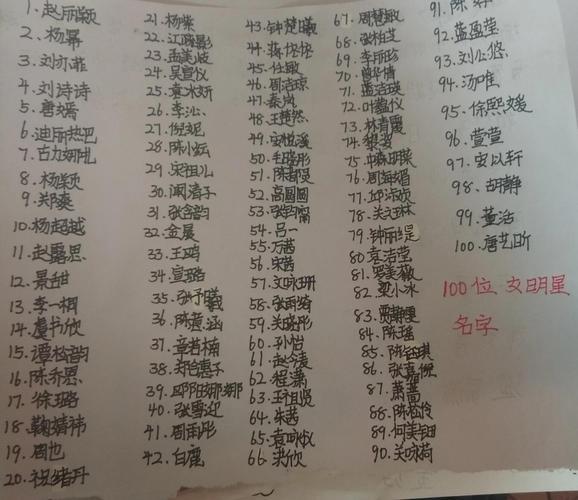 1.赵丽颖
2.杨幂
3.刘亦菲
4.刘诗诗
5.唐嫣
6.迪丽热巴
7.古力娜扎
8.杨颖
9.郑爽
10.杨超越
11.赵露思
12.景甜
13.李一桐
14.虞书欣
15.谭松韵
16.陈乔恩
17.徐璐
18.鞠婧祎
19.周也
20.祝绪丹
21.杨紫
22.江疏影
23.孟美岐
24.吴宣仪
25.袁冰妍
26.李沁
27.倪妮
28.陈小纭
29.宋祖儿
30.阚清子
31.张含韵
32.金晨
33.王鸥
34.宣璐
35.张予曦
36.陈意涵
37.章若楠
38.郑合惠子
39.欧阳娜娜
40.张雪迎
41.周雨彤
42.白鹿
43.钟楚曦
44.蒋依依
45.任敏
46.周洁琼
47.秦岚
48.王楚然
49.安悦溪
50.毛晓彤
51.陈都灵
52.高圆圆
53.张钧甯
54.吕一
55.万茜
56.宋茜
57.刘咏珊
58.张雨绮
59.关晓彤
60.孙怡
61.赵今麦
62.程潇
63.王祖贤
64.朱茜
65.袁咏仪
66.洪欣
67.周慧敏
68.张柏芝
69.李丽珍
70.曾华倩
71.蓝洁瑛
72.叶蕴仪
73.林青霞
74.黎姿
75.中森明菜
76.周海媚
77.邱淑贞
78.关之琳
79.钟丽缇
80.袁洁莹
81.罗美薇
82.梁小冰
83.贾静雯
84.陈瑶
85.陈钰琪
86.张嘉倪
87.萧蔷
88.陈松伶
89.何美钿
90.关咏荷
91.陈
92.蓝盈莹
93.刘心悠
94.汤唯
95.徐熙媛
96.萱萱
97.安以轩
98.胡静
99.董洁
100.唐艺昕
100位 女明星
名字